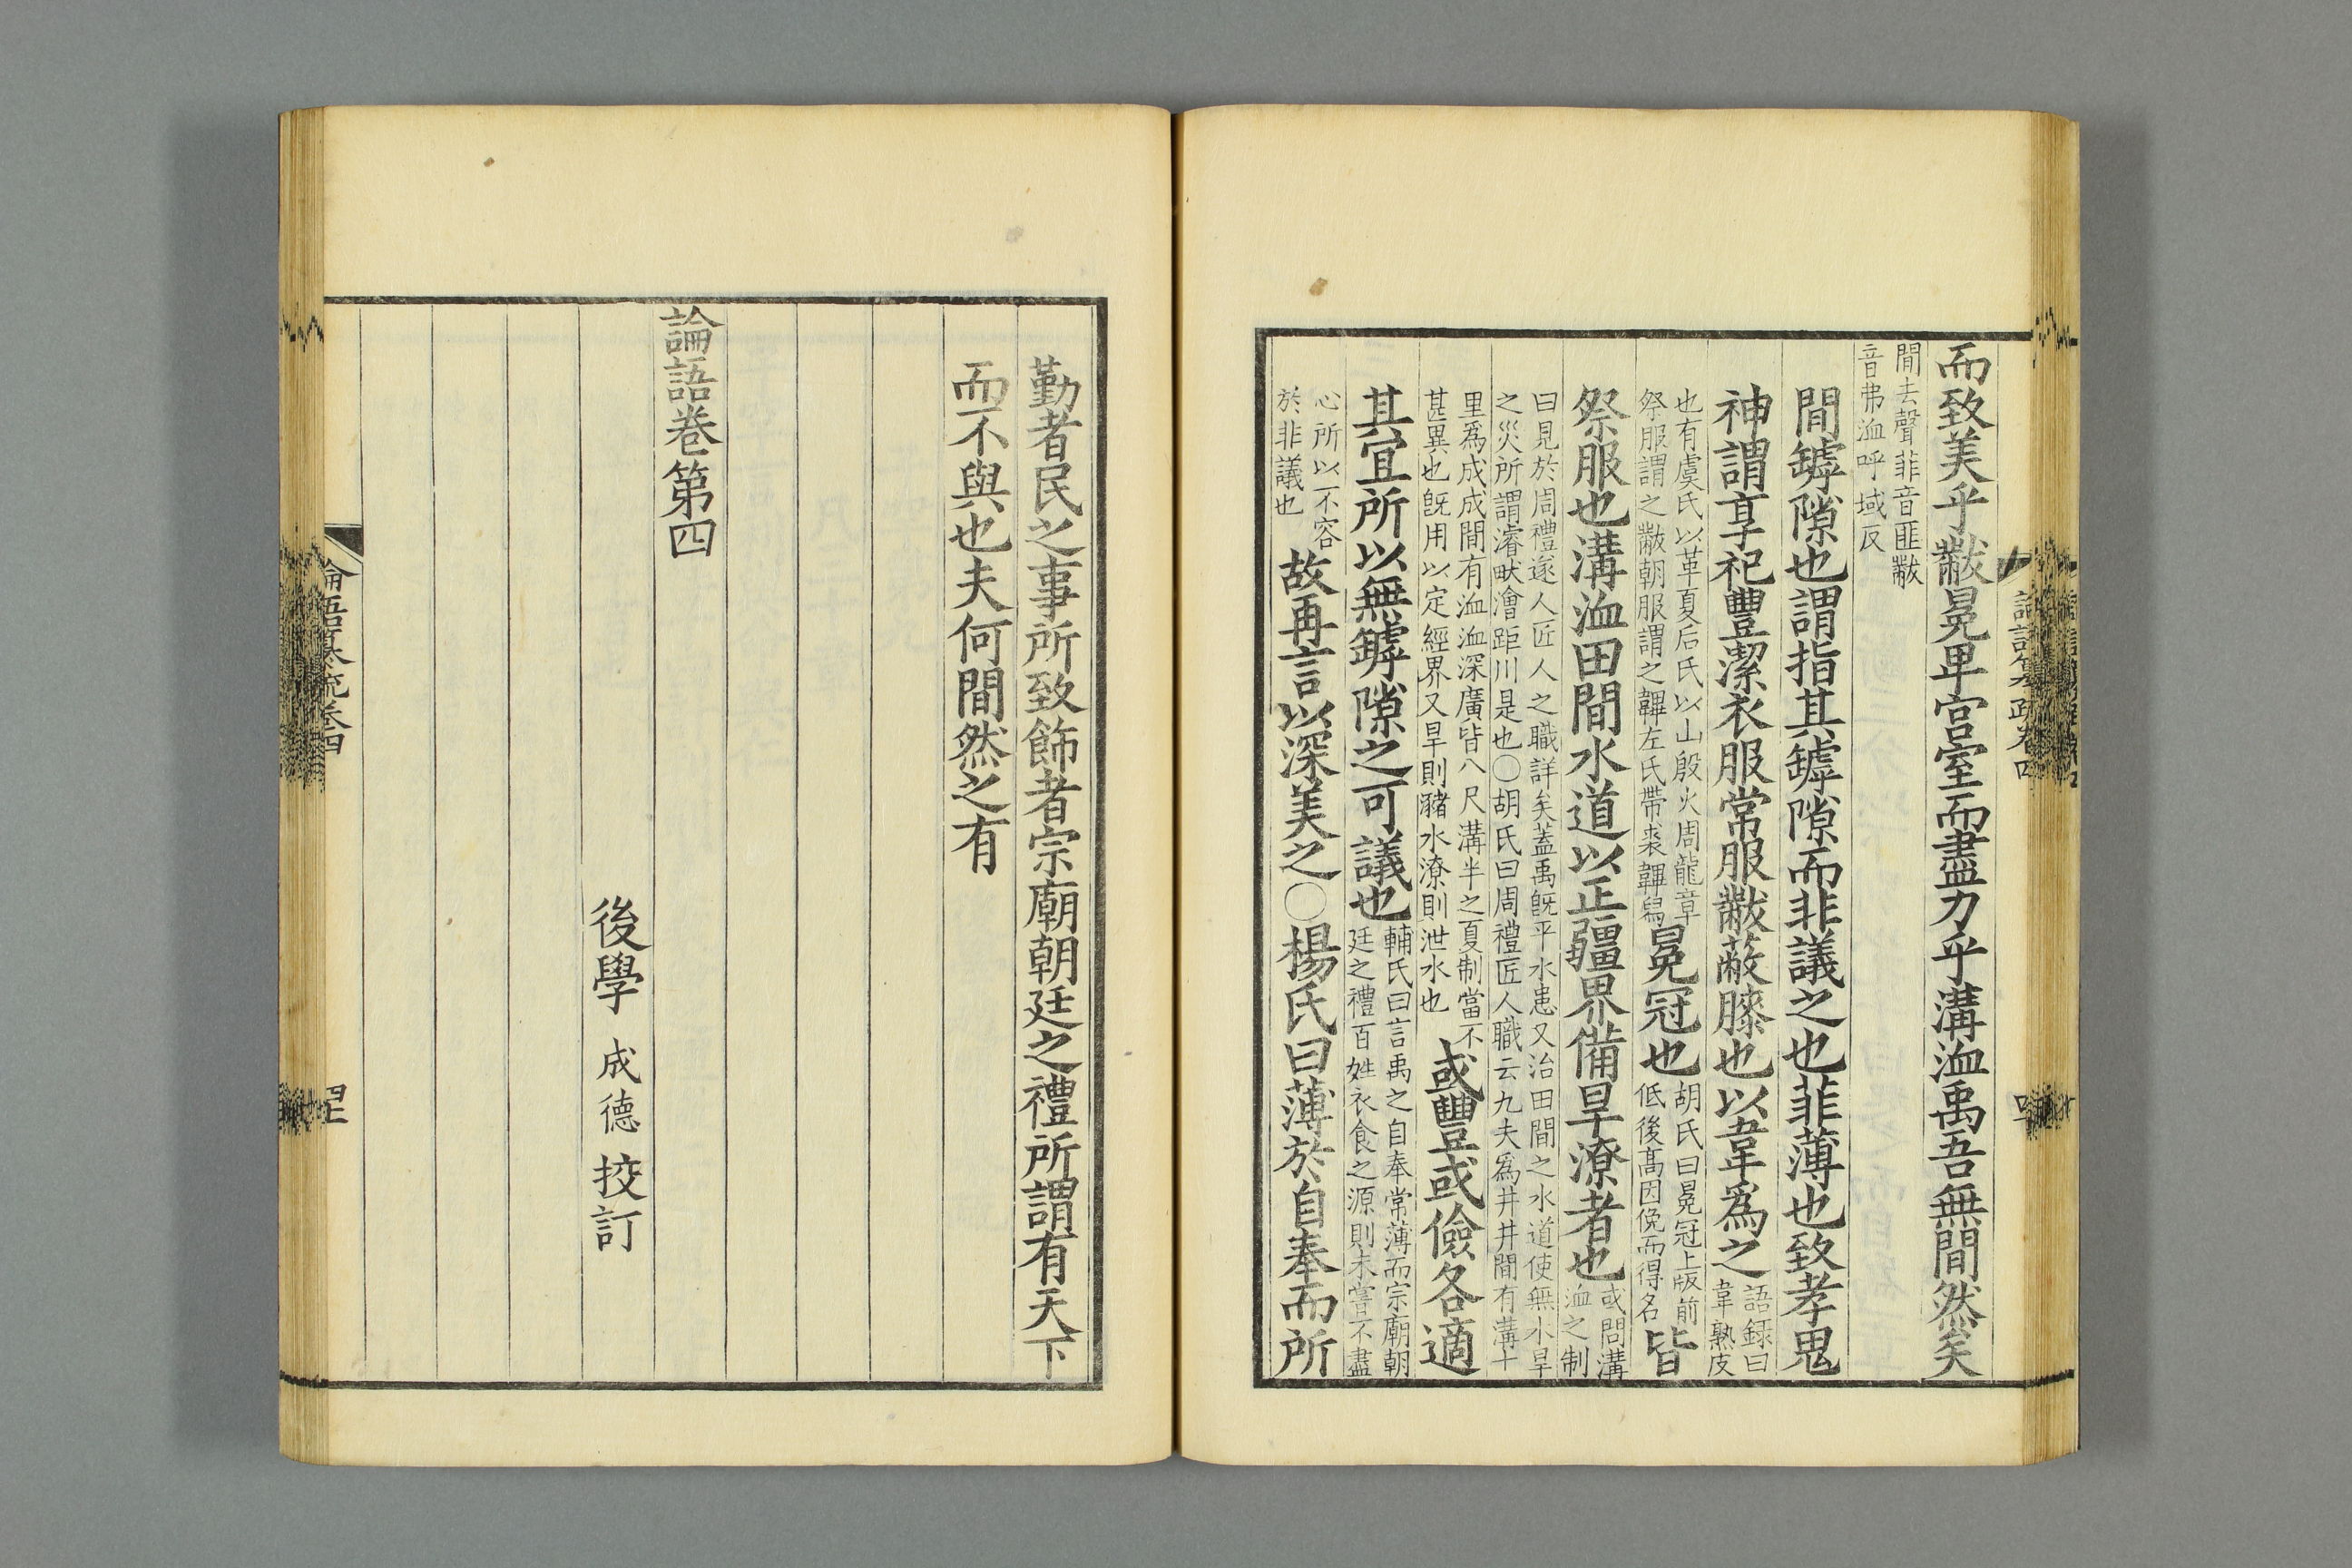 而致美乎黻冕卑宮室而盡力乎溝洫禹吾無間然矣
間去聲菲音匪黻音弗洫呼域反
間罅隙也謂指其罅隙而非議之也菲薄也致孝鬼
神謂享祀豐潔衣服常服黻蔽膝也以韋爲之語録曰韋熟皮
也有虞氏以革夏后氏以山殷火周龍章祭服謂之黻朝服謂之韠左氏帶裳韠舄冕冠也胡氏曰冕冠上版前低後髙因俛而得名皆
祭服也溝洫田間水道以正疆界備旱潦者也或問溝洫之制
曰見於周禮遂人匠人之職詳矣蓋禹旣平水患又治田間之水道使無水旱之災所謂濬畎澮距川是也○胡氏曰周禮匠人職云九夫爲井井間有溝十
里爲成成間有洫洫深廣皆八尺溝半之夏制當不甚異也旣用以定經界又旱則瀦水潦則泄水也或豐或儉各適
其宜所以無罅隙之可議也輔氏曰言禹之自奉常薄而宗廟朝廷之禮百姓衣食之源則未嘗不盡
心所以不容於非議也故再言以深美之○楊氏曰薄於自奉而所
勤者民之事所致飾者宗廟朝廷之禮所謂有天下
而不與也夫何間然之有
論語卷第四
後學 成德 挍訂